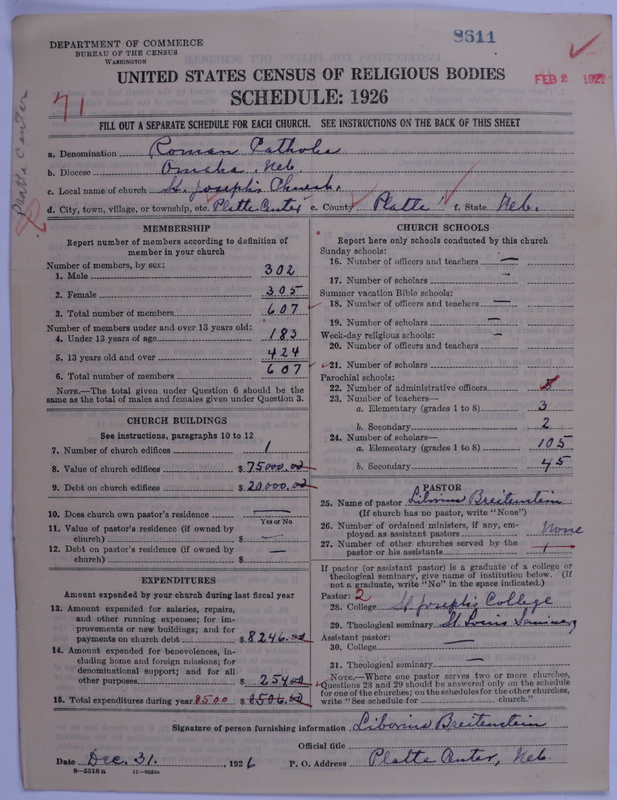 8611
DEPARTMENT OF COMMERCE
BUREAU OF THE CENSUS
WASHINGTON
FEB 2 192
UNITED STATES CENSUS OF RELIGIOUS BODIES
SCHEDULE: 1926
71
Platte Center
FILL OUT A SEPARATE SCHEDULE FOR EACH CHURCH. SEE INSTRUCTIONS ON THE BACK OF THIS SHEET
a. Denomination Roman Catholic
b. Diocese Omaha, Neb.
c. Local name of church St. Joseph's Church.
d. City, town, village, or township, etc. Platte Center e. County Platte f. State Neb.
MEMBERSHIP
Report number of members according to definition of
member in your church
Number of members, by sex:
1. Male 302
2. Female 305
3. Total number of members 607
Number of members under and over 13 years old:
4. Under 13 years of age 183
5. 13 years old and over 424
6. Total number of members 607
NOTE.—The total given under Question 6 should be the
same as the total of males and females given under Question 3.
CHURCH BUILDINGS
See instructions, paragraphs 10 to 12
7. Number of church edifices 1
8. Value of church edifices $ 75000.00
9. Debt on church edifices $ 20000.00
10. Does church own pastor's residence —
Yes or No
11. Value of pastor's residence (if owned by
church) $ —
12. Debt on pastor's residence (if owned by
church) $ —
EXPENDITURES
Amount expended by your church during last fiscal year
13. Amount expended for salaries, repairs,
and other running expenses; for im-
provements or new buildings; and for
payments on church debt $ 8246.00
14. Amount expended for benevolences, in-
cluding home and foreign missions; for
denominational support; and for all
other purposes $ 254.00
15. Total expenditures during year 8500 $ 8506.00
CHURCH SCHOOLS
Report here only schools conducted by this church
Sunday schools:
16. Number of officers and teachers —
17. Number of scholars -
Summer vacation Bible schools:
18. Number of officers and teachers —
19. Number of scholars —
Week-day religious schools:
20. Number of officers and teachers
21. Number of scholars
Parochial schools:
22. Number of administrative officers
23. Number of teachers—
a. Elementary (grades 1 to 8) 3
b. Secondary 2
24. Number of scholars—
a. Elementary (grades 1 to 8) 105
b. Secondary 45
PASTOR
25. Name of pastor Liborius Breitenstein
(If church has no pastor, write "None")
26. Number of ordained ministers, if any, em-
ployed as assistant pastors None
27. Number of other churches served by the
pastor or his assistants 1
If pastor (or assistant pastor) is a graduate of a college or
theological seminary, give name of institution below. (If
not a graduate, write "No" in the space indicated.)
Pastor: 2
28. College St Joseph's College
29. Theological seminary St. Louis Seminary
Assistant pastor:
30. College —
31. Theological seminary —
NOTE.—Where one pastor serves two or more churches,
Questions 28 and 29 should be answered only on the schedule
for one of the churches; on the schedules for the other churches,
write "See schedule for church."
Signature of person furnishing information Liborius Breitenstein
Official title
Date Dec. 31. , 1926 P. O. Address Platte Center, Neb.
8—5518a 11—9051